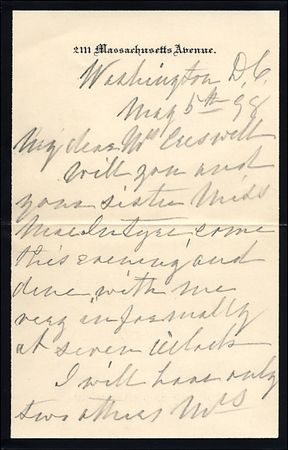 2111 Massachusetts Avenue.
Washington D.C.
May 5th 98
My dear Mrs Creswell
Will you and
your sister Miss
MacIntyre, come
this evening, and
dine, with me
very informally
at seven O'clock
I will have only
two others Mrs